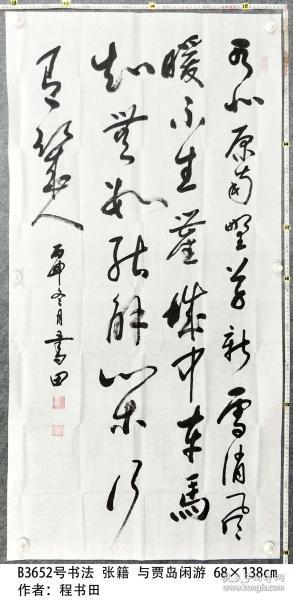 水北原南野草新雪消風
暖不生塵城中車馬
知無數能解閑行
有幾人
丙申冬月書田
B3652号书法 张籍 与贾岛闲游 68×138cm
作者：程书田